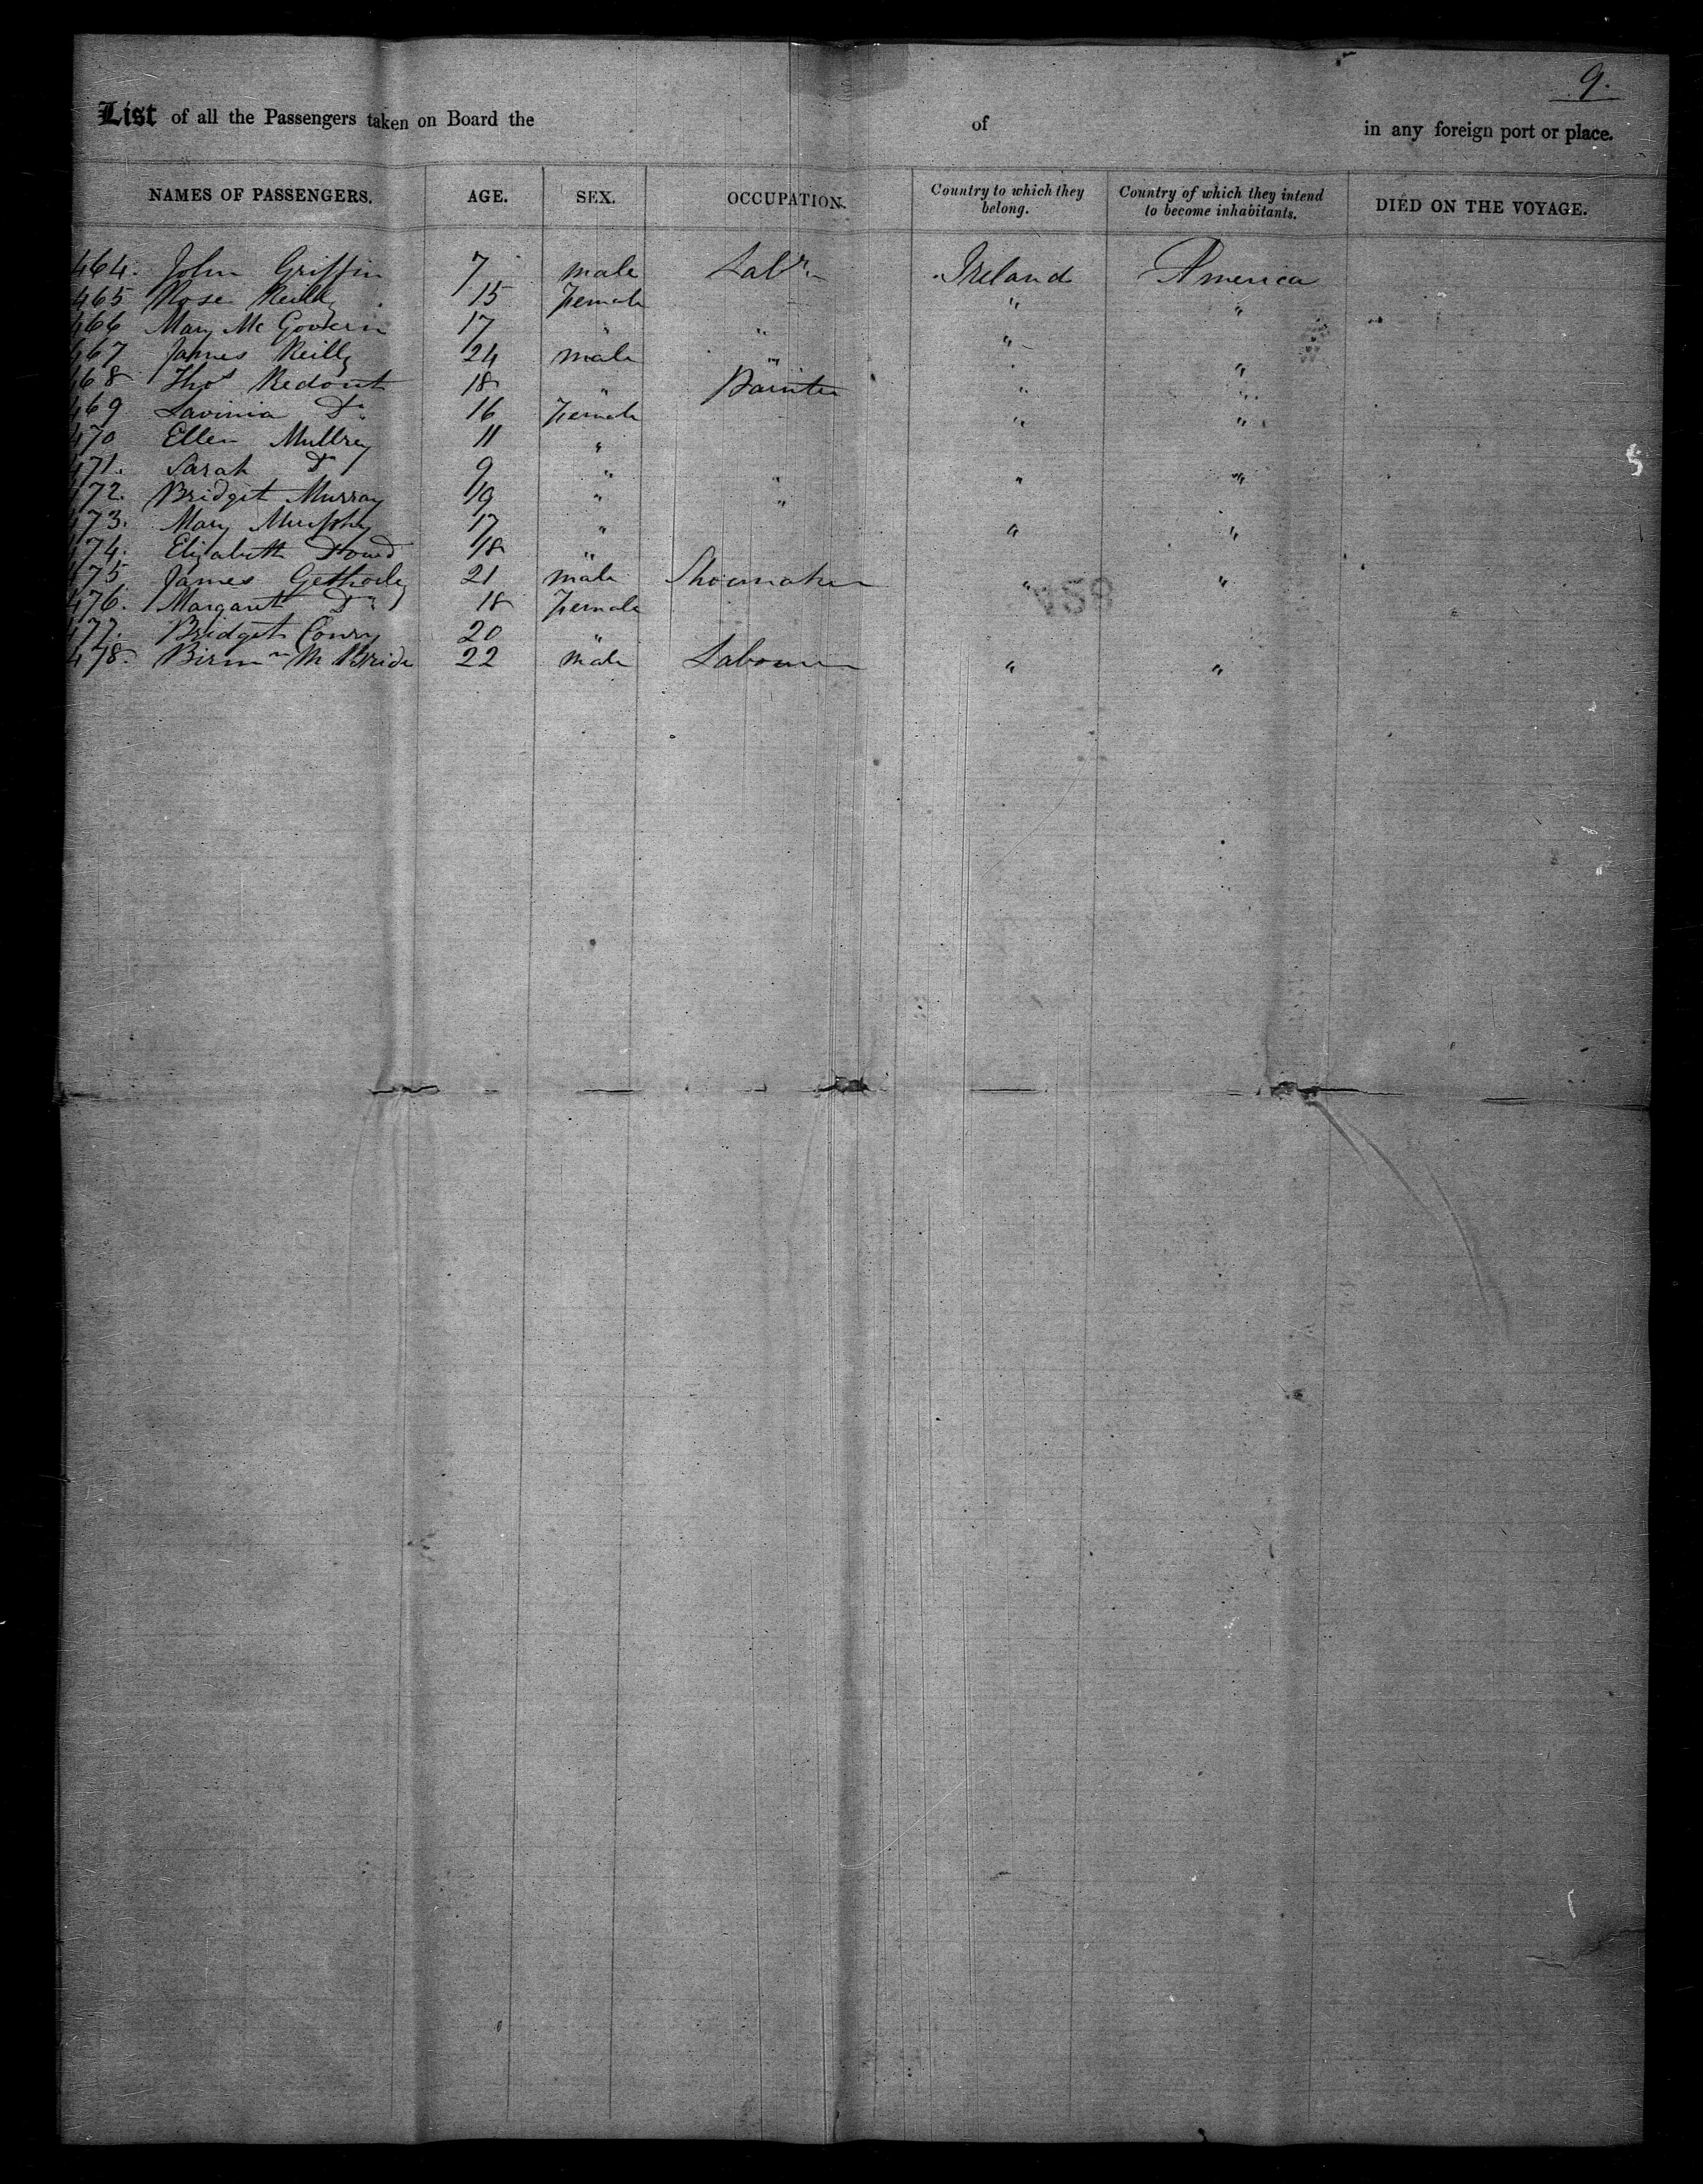 9.
List of all the Passengers taken on Board the of in any foreign port or place.
NAMES OF PASSENGERS. AGE. SEX. OCCUPATION. Country to which they belong. Country of which they intend to become inhabitants. DIED ON THE VOYAGE.
464. John Griffin 7 male Labr. Ireland America
465 Rose Reilly 15 Female " "
466 Mary Mc Govern 17 " " "
467 James Reilly 24 male " "
468 Thos Redout 18 " Painter " "
469 Lavinia Do 16 Female " "
470 Ellen Mullrey 11 "
471. Sarah Do 9 " " " "
472. Bridget Murray 19 " "
473. Mary Murphy 17 " " "
474. Elizabeth Dowd 18 "
475 James 21 male Shoemaker " "
476. Margaret Do 18 Female
477. Bridget Conry 20 "
478. Birmn Mc Bride 22 male Labourer " "